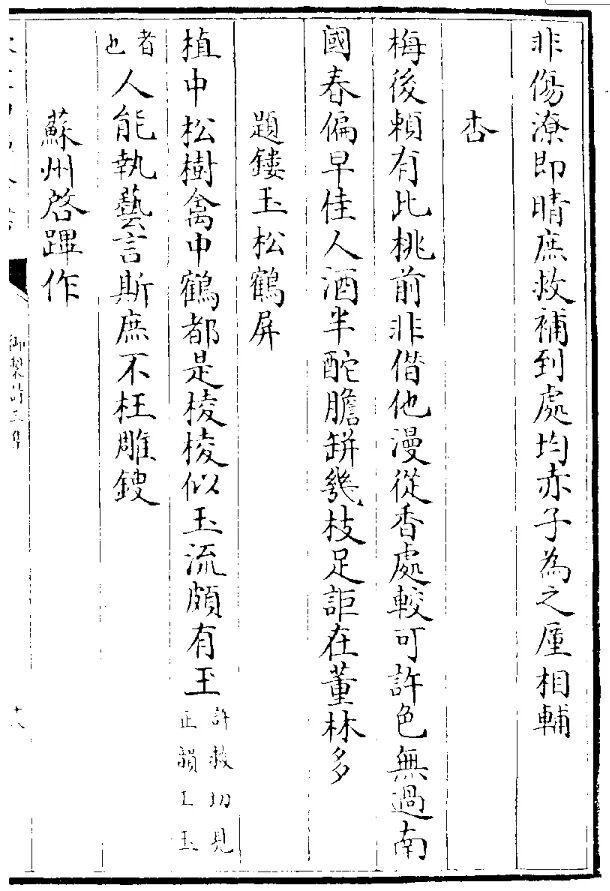 非傷潦即晴庶救補到處均赤子為之厪相輔
杏
梅後賴有比桃前非借他漫從香處較可許色無過南
國春偏早佳人酒半酡膽缾幾枝足詎在董林多
題鏤玉松鶴屏
植中松樹禽中鶴都是棱棱似玉流頗有玊許救切見正韻工玉
者也人能執藝言斯庶不枉雕鎪
蘇州啓蹕作
御製詩三集
十八